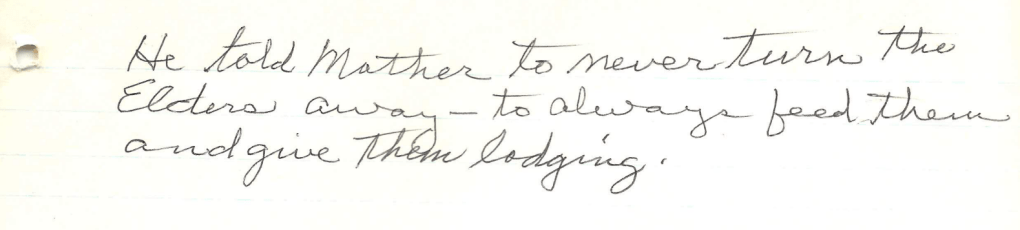 He told Mother to never turn the
Elders away – to always feed them
and give them lodging.